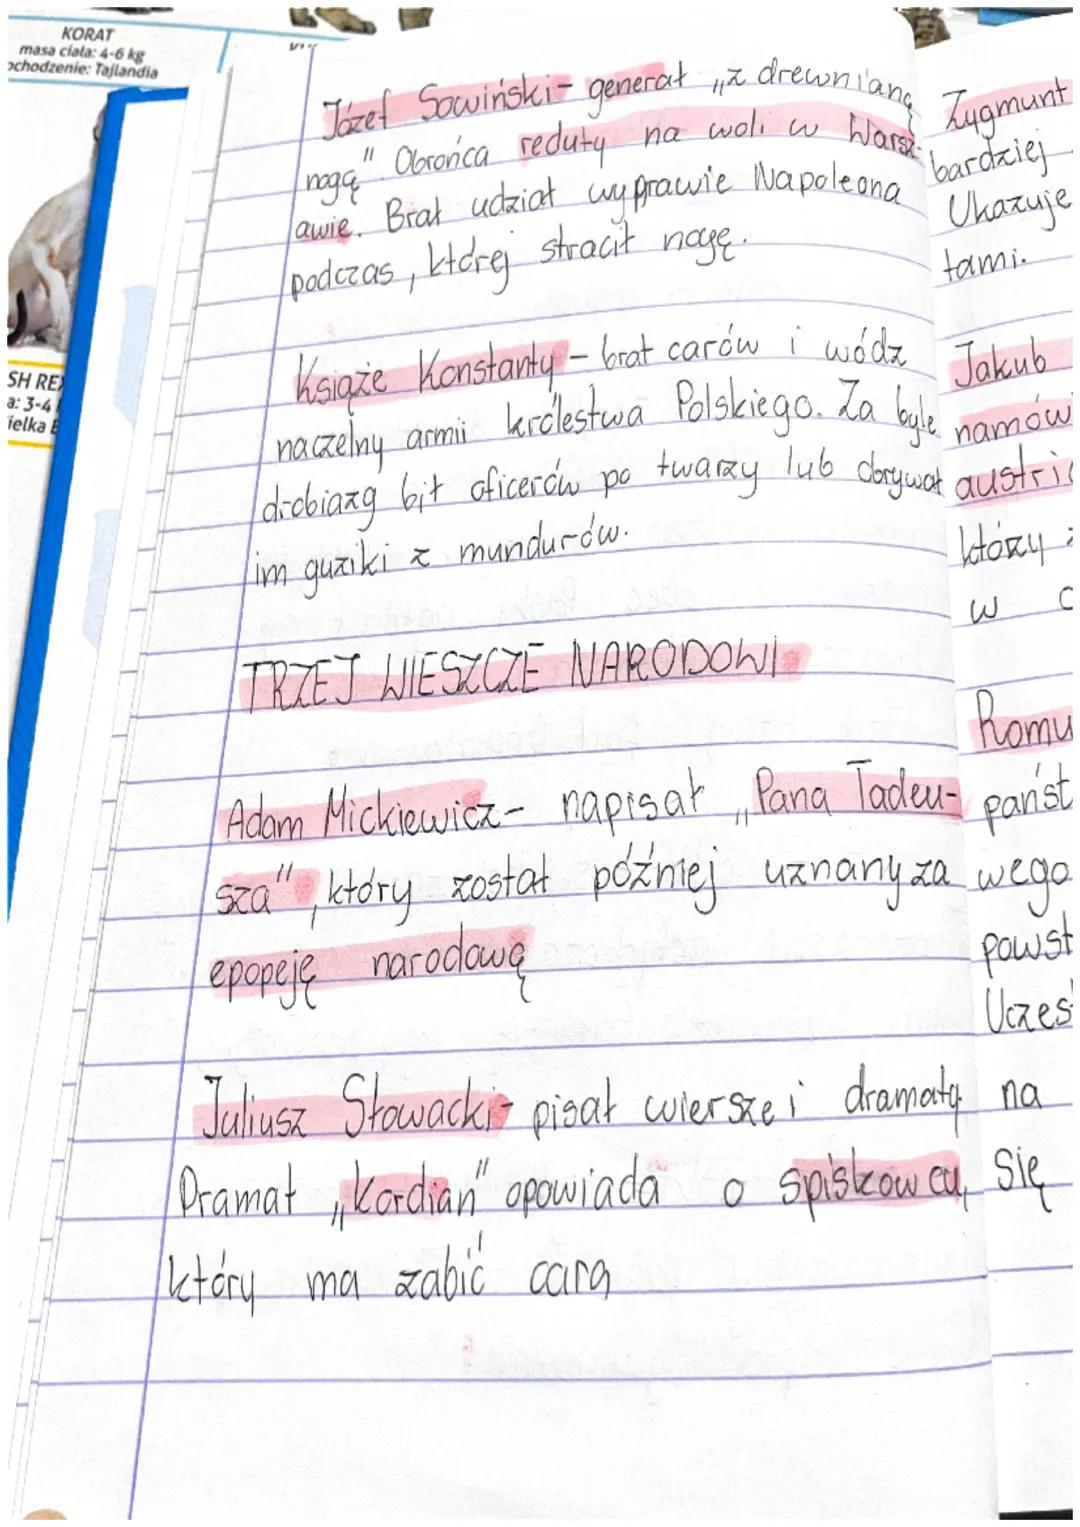 KORAT
masa ciała: 4-6 kg
ochodzenie: Tajlandia
SH REX
a: 3-4
ielka B
Józef Sowiński- generał „z drewnianą
nogą". Obrońca reduty na woli w Warsz-
awie. Brał udział wyprawie Napoleona
podczas, której stracił nogę.
Książe Konstanty - brat carów i wódz
naczelny armii królestwa Polskiego. Za byle
drobiazg bił oficerów po twarzy lub obrywał
im guziki z mundurów.
TRZEJ WIESZCZE NARODOWI
Adam Mickiewicz- napisał „Pana Tadeu-
sza", który został później uznany za
epopeję narodową
Juliusz Słowacki- pisał wiersze i dramaty.
Dramat „Kordian" opowiada o spiskowcu,
który ma zabić cara
Zygmunt
bardziej
Ukazuje
tami.
Jakub
namów
austri
którzy z
w
Romu
pańs​t
wego
powst
Uczes
na
się